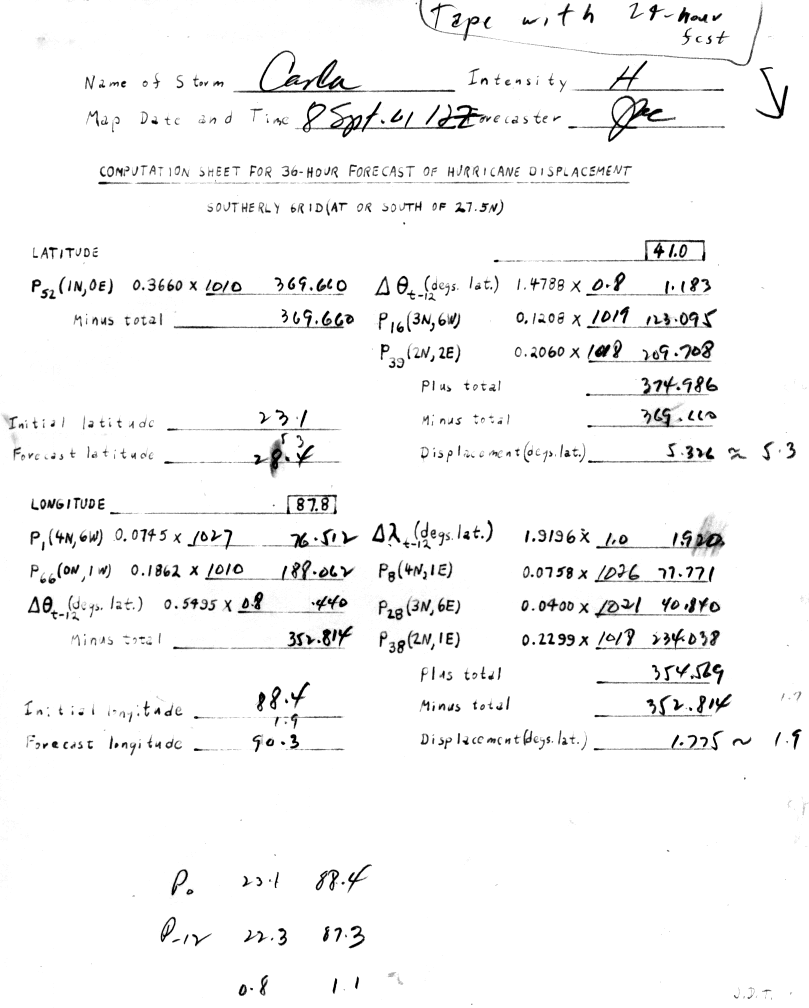 Tape with 24-hour
fcst
Name of Storm Carla Intensity H
Map Date and Time 8 Spt. 61 12Z Forecaster
COMPUTATION SHEET FOR 36-HOUR FORECAST OF HURRICANE DISPLACEMENT
SOUTHERLY GRID (AT OR SOUTH OF 27.5N)
LATITUDE 41.0
P52(1N,0E) 0.3660 x 1010 369.660 Δθt-12 (degs. lat.) 1.4788 x 0.8 1.183
Minus total 369.660 P16(3N,6W) 0.1208 x 1019 123.095
P39(2N,2E) 0.2060 x 1018 209.708
Plus total 374.986
Initial latitude 23.1 Minus total 369.660
5.3
Forecast latitude 28.4 Displacement (degs. lat.) 5.326 ≈ 5.3
LONGITUDE 87.8
P1(4N,6W) 0.0745 x 1027 76.512 Δλt-12 (degs. lat.) 1.9196 x 1.0 1.920
P66(0N,1W) 0.1862 x 1010 188.062 P8(4N,1E) 0.0758 x 1026 77.771
Δθt-12 (degs. lat.) 0.5495 x 0.8 .440 P28(3N,6E) 0.0400 x 1021 40.840
Minus total 352.814 P38(2N,1E) 0.2299 x 1018 234.038
Plus total 354.569
Initial longitude 88.4 Minus total 352.814 1.9
1.9
Forecast longitude 90.3 Displacement (degs. lat.) 1.775 ~ 1.9
P0 23.1 88.4
P-12 22.3 87.3
0.8 1.1
J.D.T.